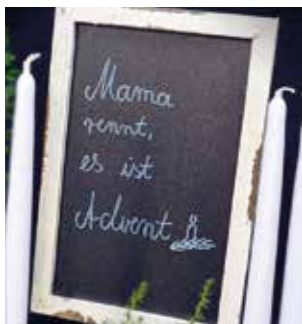 Mama
rennt,
es ist
Advent